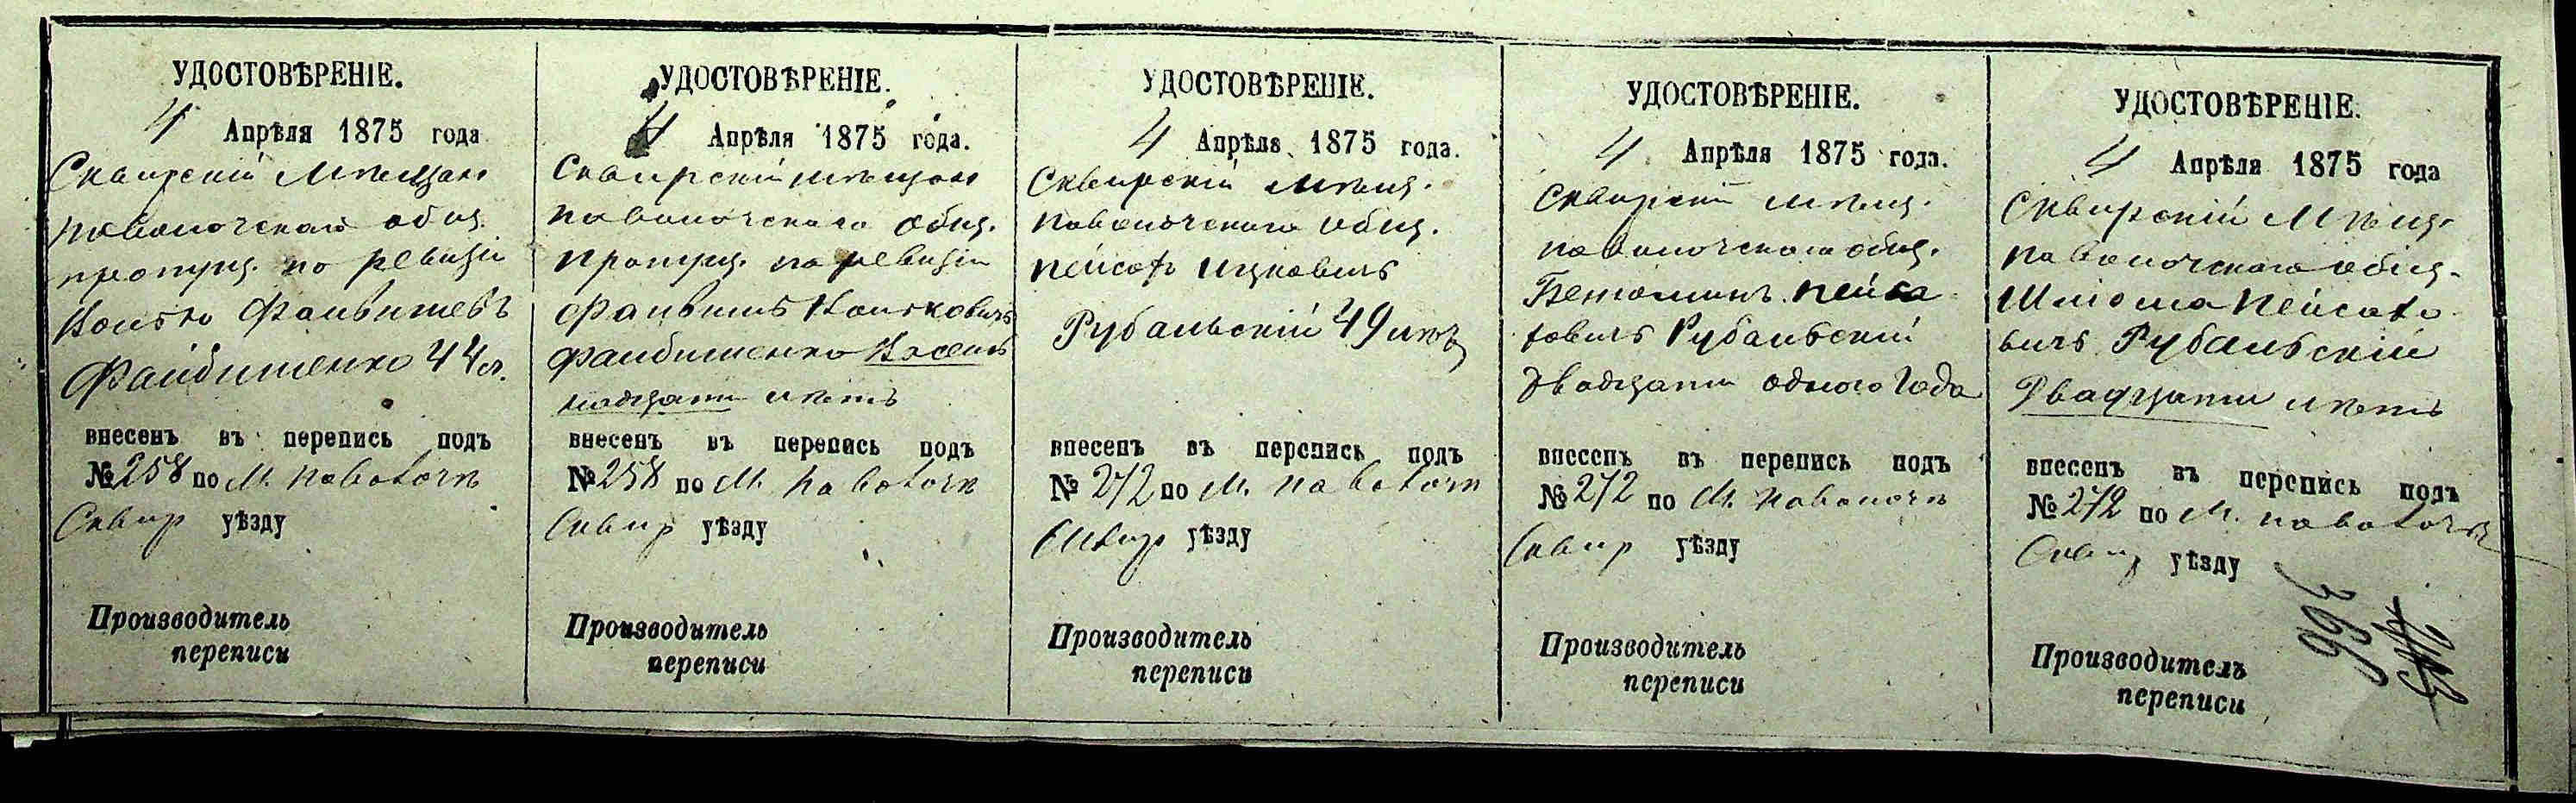 УДОСТОВѢРЕНІЕ.
4 Апрѣля 1875 года
Сквирскій Мѣщан
паволочскаго общ.
пропущ. по ревизіи
Фаивишевъ
Файбишенко 44 л.
внесенъ въ перепись подъ
№ 258 по М. Паволочѣ
Сквир уѣзду
Производитель
переписи
УДОСТОВѢРЕНІЕ.
4 Апрѣля 1875 года.
Сквирскій мѣщан
паволочскаго общ.
пропущ. по ревизіи
Фаивишъ
Файбишенко
надцати лѣтъ
внесенъ въ перепись подъ
№ 258 по М. Паволочѣ
Сквир уѣзду
Производитель
переписи
УДОСТОВѢРЕНІЕ.
4 Апрѣля 1875 года.
Сквирскій мѣщ.
паволочскаго общ.
Пейсахъ Ицковичъ
Рубальскій 49 лѣтъ
внесенъ въ перепись подъ
№ 272 по М. Паволочѣ
Сквир уѣзду
Производитель
переписи
УДОСТОВѢРЕНІЕ.
4 Апрѣля 1875 года.
Сквирскій мѣщ.
паволочскаго общ.
Беньоминъ Пейса
ховичъ Рубальскій
двадцати одного года
внесенъ въ перепись подъ
№ 272 по М. Паволочѣ
Сквир уѣзду
Производитель
переписи
УДОСТОВѢРЕНІЕ.
4 Апрѣля 1875 года
Сквирскій Мѣщ.
паволочскаго общ.
Шліома Пейсахо
вичъ Рубальскій
Двадцати лѣтъ
внесенъ въ перепись подъ
№ 272 по М. Паволочѣ
Сквир уѣзду
366
Производитель
переписи